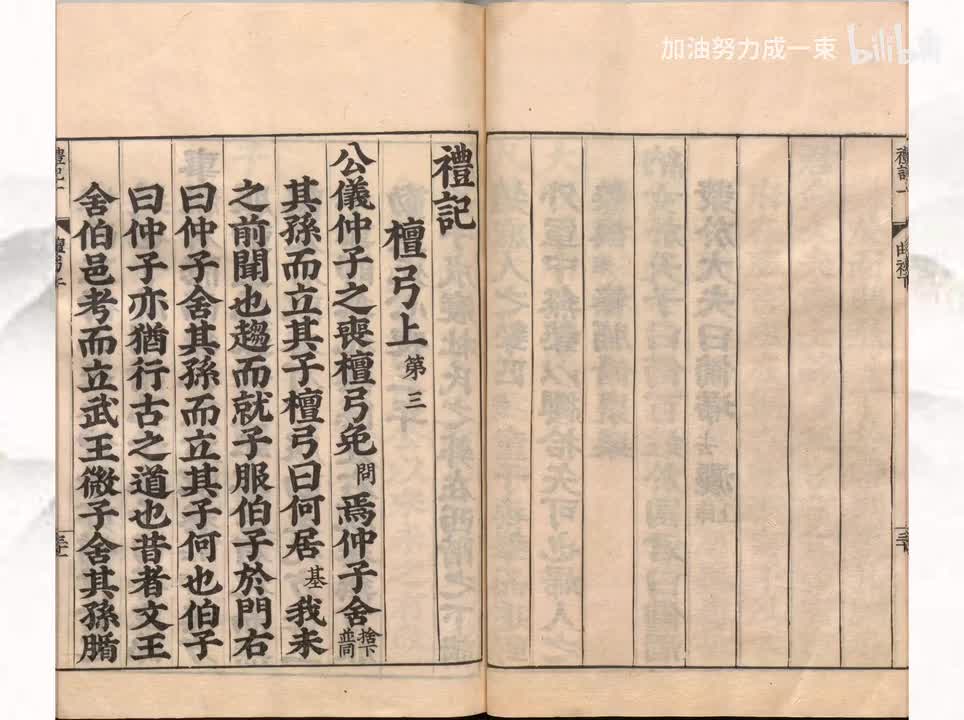 加油努力成一束 bilibili
禮記
檀弓上 第三
公儀仲子之喪檀弓免 問 焉仲子舍 捨下並同
其孫而立其子檀弓曰何居 基 我未
之前聞也趨而就子服伯子於門右
曰仲子舍其孫而立其子何也伯子
曰仲子亦猶行古之道也昔者文王
舍伯邑考而立武王微子舍其孫腯
禮記一